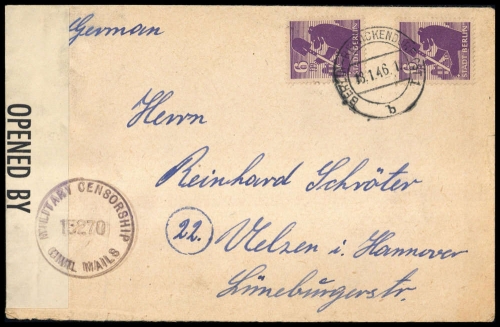 German
6
STADT BERLIN
STADT BERLIN
15.1.46.
b
OPENED BY
MILITARY CENSORSHIP
15270
CIVIL MAILS
Herrn
Reinhard Schröter
22.
Uelzen i. Hannover
Lüneburgerstr.